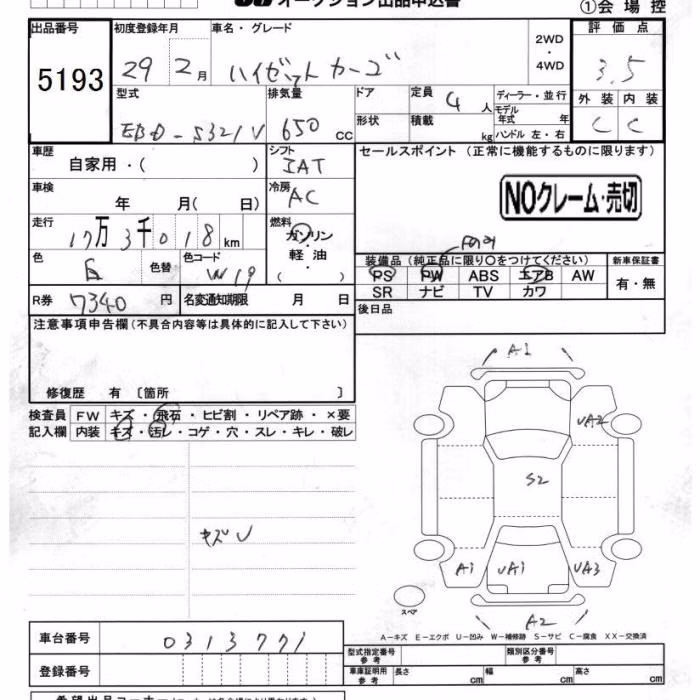 オークション出品申込書
①会場控
出品番号
5193
初度登録年月
29 2月
車名・グレード
ハイゼットカーゴ
2WD
・
4WD
評価点
3.5
外装 内装
C C
型式
EBD-S321V
排気量
650 CC
ドア
形状
定員 4人
積載 kg
ディーラー・並行
モデル年式 年
ハンドル 左・右
車歴
自家用・( )
シフト
IAT
車検
年 月( 日)
冷房
AC
走行
17万3千018km
燃料
ガソリン
・
軽油
( )
色
白
色替
色コード
W19
R券 7340円
名変通知期限 月 日
セールスポイント (正常に機能するものに限ります)
NOクレーム・売切
装備品 (純正品に限り○をつけてください)
新車保証書
PS PW ABS エアB AW
SR ナビ TV カワ
有・無
後日品
注意事項申告欄(不具合内容等は具体的に記入して下さい)
修復歴 有 〔箇所 〕
検査員 FW キズ・飛石・ヒビ割・リペア跡・×要
記入欄 内装 キズ・汚レ・コゲ・穴・スレ・キレ・破レ
キズU
A1
UA2
S2
A1 UA1 UA3
スペア
A2
A−キズ E−エクボ U−凹み W−補修跡 S−サビ C−腐食 XX−交換済
車台番号 0313771
登録番号
型式指定番号 参考
類別区分番号 参考
車庫証明用 参考 長さ cm 幅 cm 高さ cm